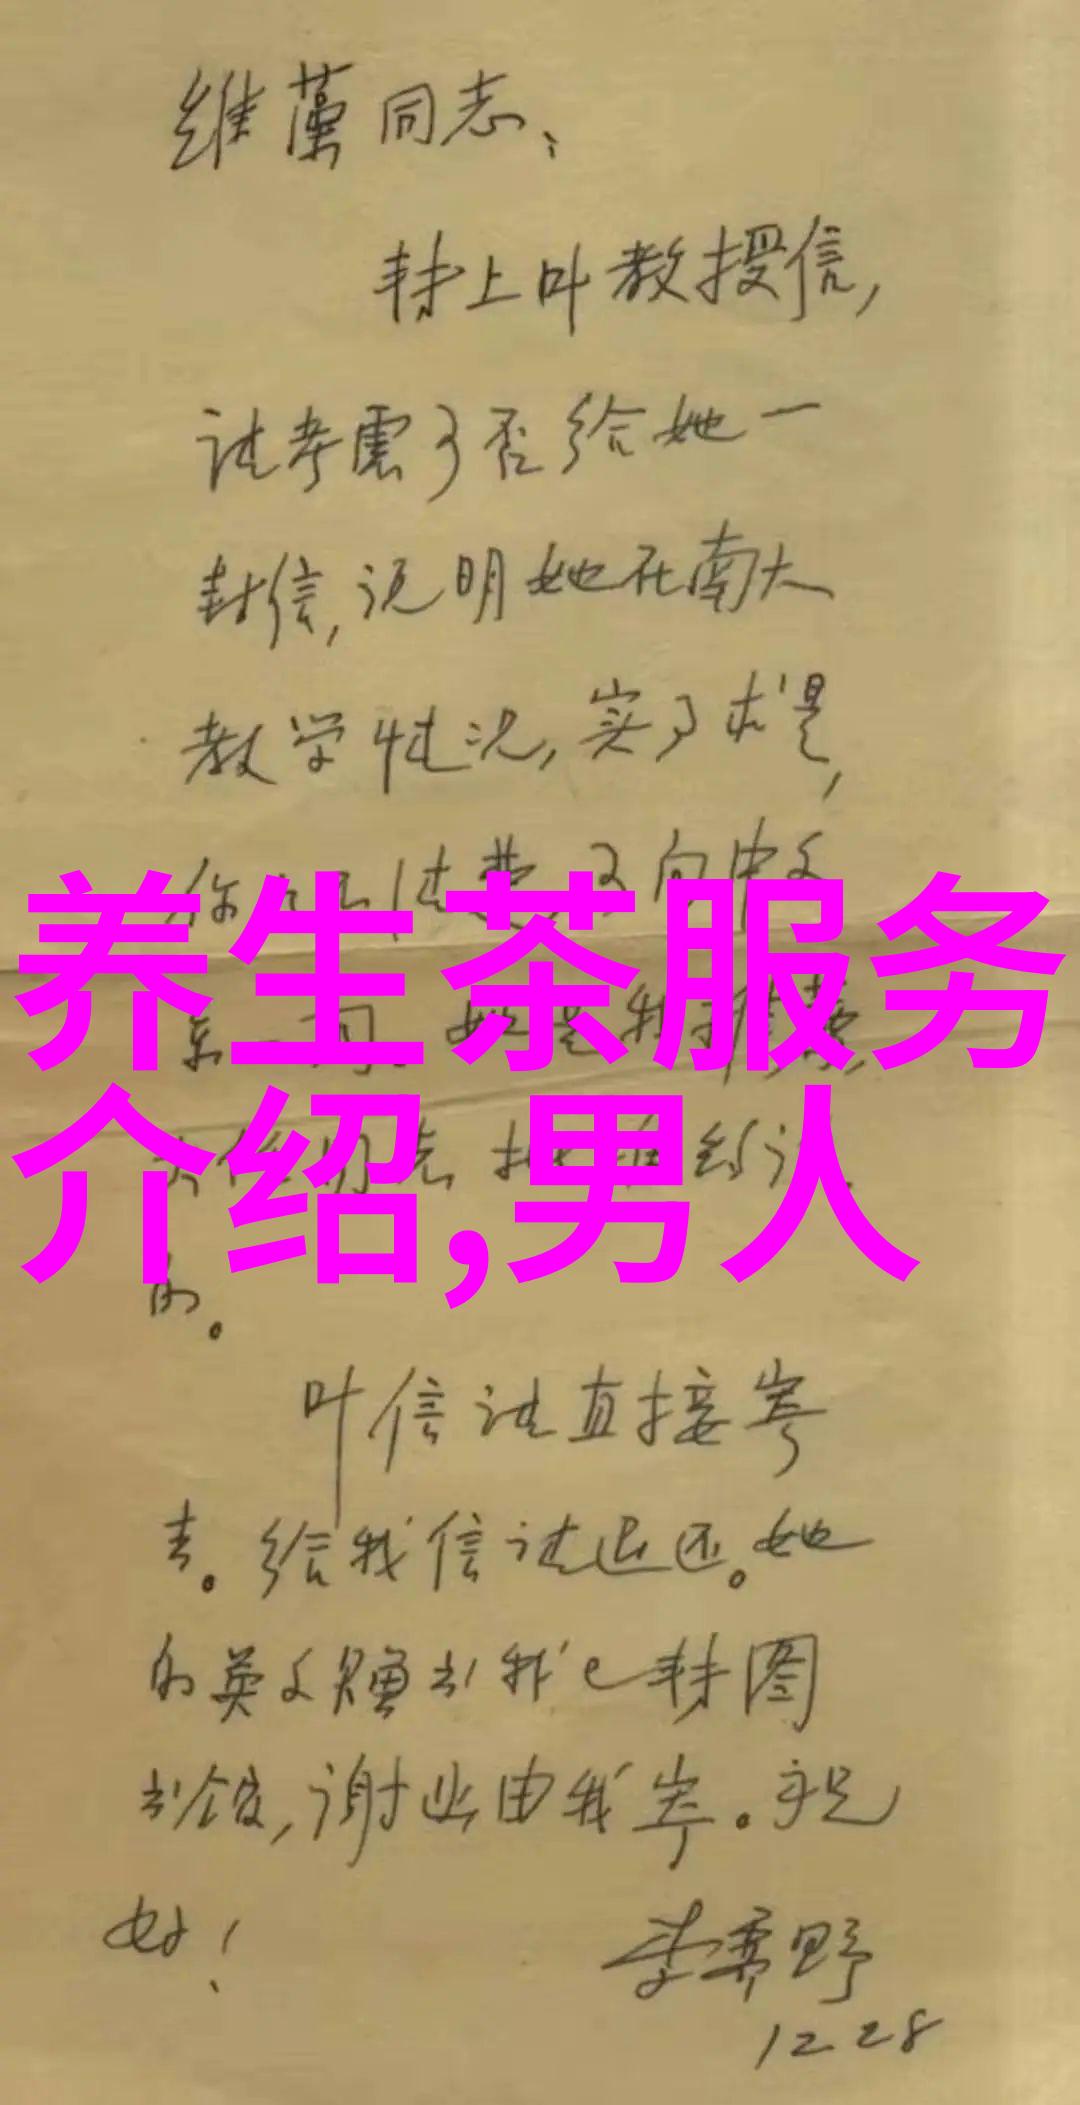 维藻同志、
转上叶教授信，
请考虑可否给她一
封信，说明她在南大
教学情况，实事求是，
你
向中文
养生茶服务
介绍,男人
的。
叶信请直接寄
去。给我信请退还。她
的英文赠书我已转图
书馆，谢此由我寄。祝
好！
李霁野
12 28